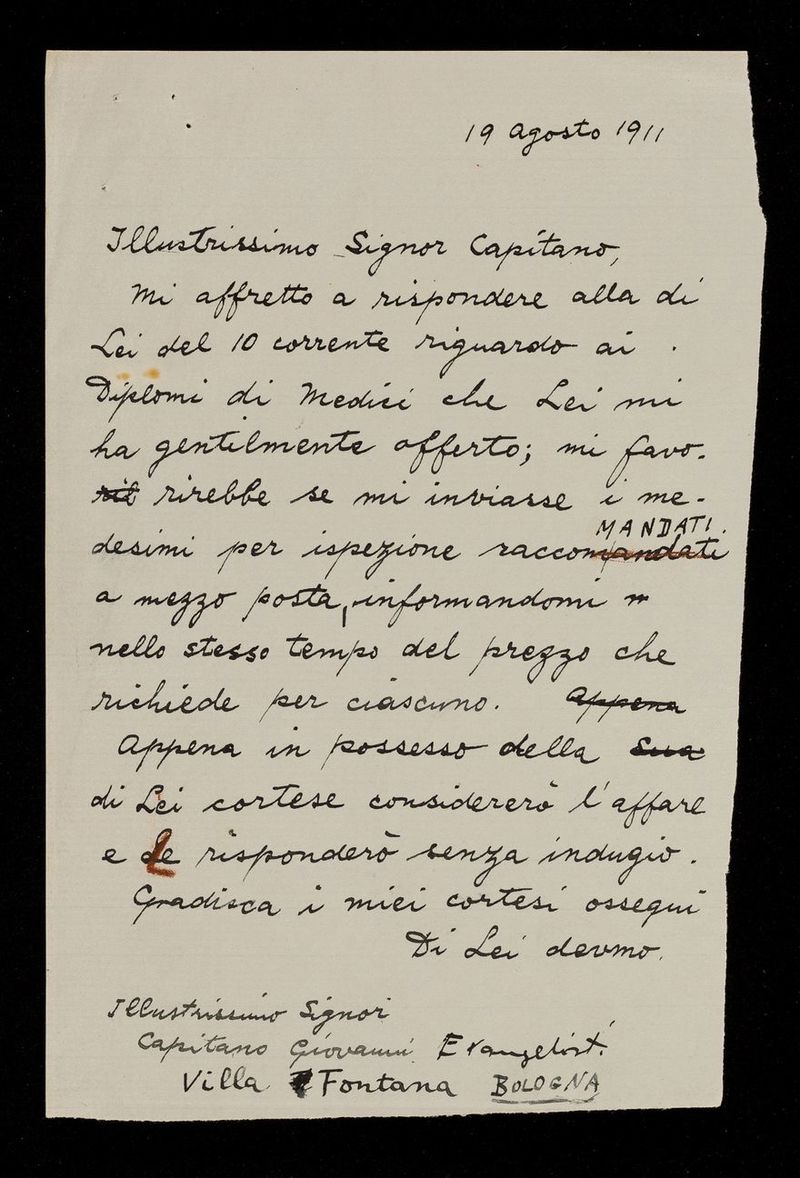 19 Agosto 1911
Illustrissimo Signor Capitano,
Mi affretto a rispondere alla di
Lei del 10 corrente riguardo ai
Diplomi di Medici che Lei mi
ha gentilmente offerto; mi favo-
rib rirebbe se mi inviasse i me-
desimi per ispezione raccomandati
MANDATI
a mezzo posta, informandomi
nello stesso tempo del prezzo che
richiede per ciascuno. Appena
Appena in possesso della Sua
di Lei cortese considererò l'affare
e Le risponderò senza indugio.
Gradisca i miei cortesi ossequi
Di Lei devmo.
Illustrissimo Signor
Capitano Giovanni Evangelisti
Villa Fontana BOLOGNA